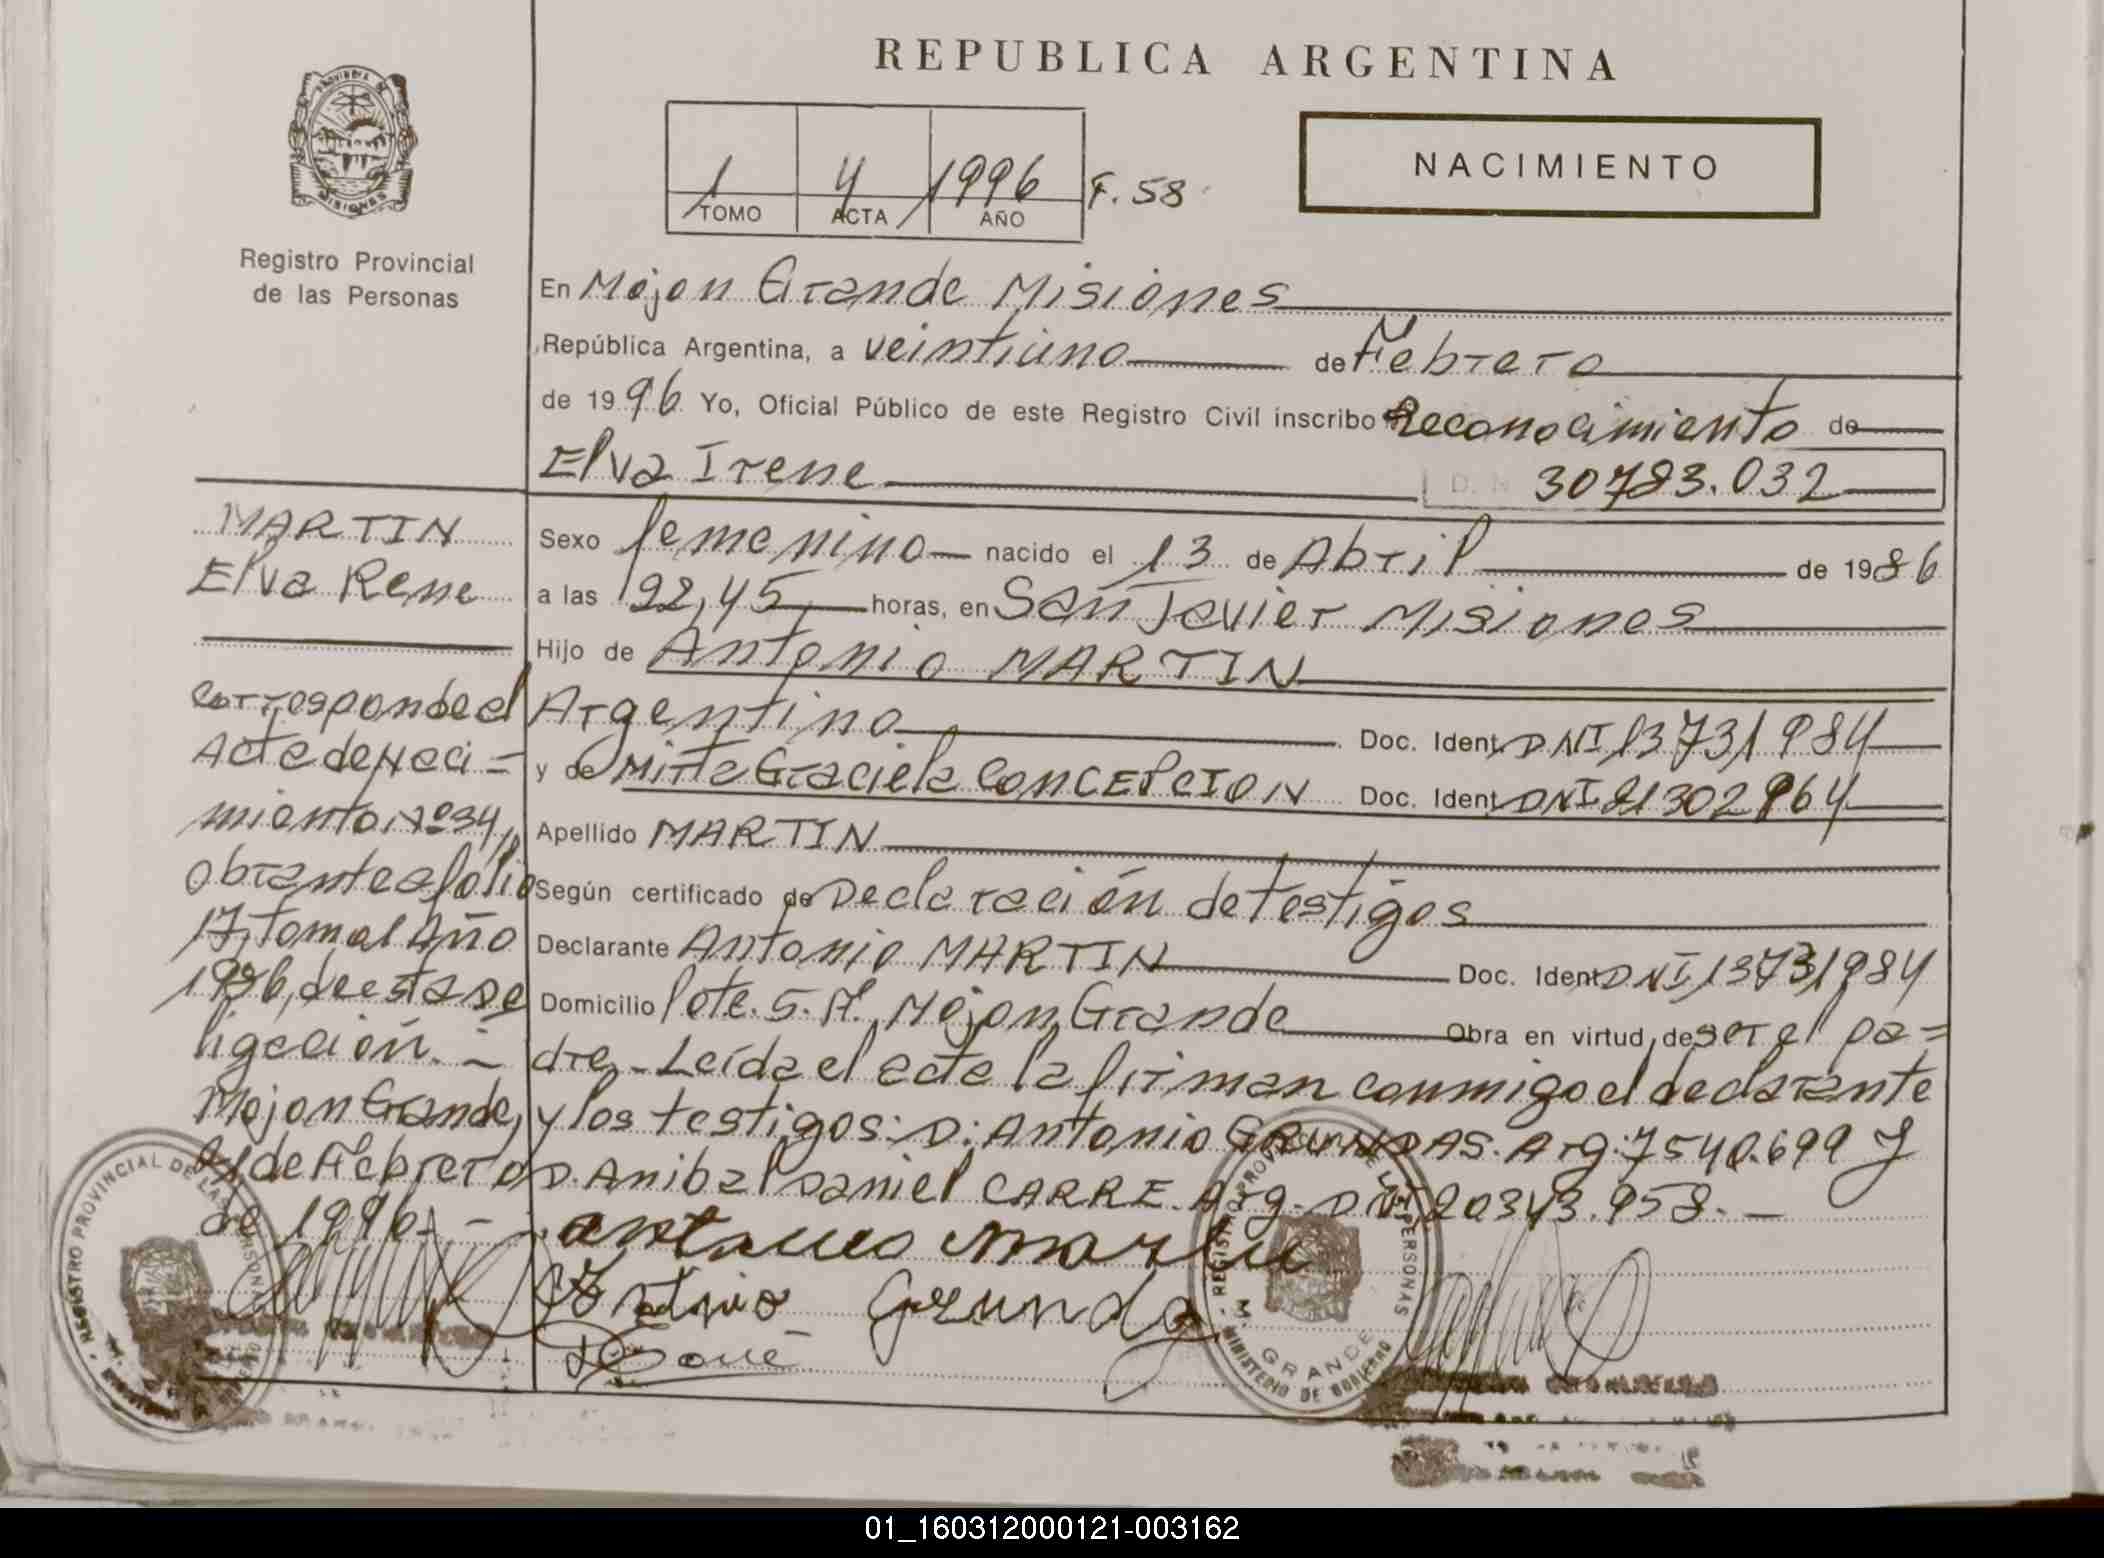 REPUBLICA ARGENTINA
PROVINCIA DE MISIONES
Registro Provincial
de las Personas
1 4 1996 F. 58
TOMO ACTA AÑO
NACIMIENTO
En Mojon Grande Misiones
República Argentina, a veintiuno de Febrero
de 1996 Yo, Oficial Público de este Registro Civil inscribo Reconocimiento de
Elva Irene D.N 30783.032
MARTIN
Elva Rene
Corresponde al
Acta de Naci=
miento, Nº 34,
obrante a folio
17, Tomo 1 Año
1986, de esta De
ligación. -
Mojon Grande,
21 de Febrero
de 1996. -
Sexo femenino nacido el 13 de Abril de 1986
a las 22,45 horas, en San Javier Misiones
Hijo de Antonio MARTIN
Argentino Doc. Ident. DNI 13731984
y de Mirta Graciela CONCEPCION Doc. Ident. DNI 21302964
Apellido MARTIN
Según certificado de Declaración de testigos
Declarante Antonio MARTIN Doc. Ident. DNI 13731984
Domicilio lote. 5. A. Mojon Grande Obra en virtud de ser el pa=
dre.- Leída el acta la firman conmigo el declarante
y los testigos: D: Antonio GRUNDAS. Arg: 7540.699 y
D. Anibal Daniel CARRE. Arg. DNI 20343.958. -
Antonio Martin
Antonio Grunda
REGISTRO PROVINCIAL DE LAS PERSONAS
REGISTRO PROVINCIAL DE LAS PERSONAS
M. GRANDE
MINISTERIO DE GOBIERNO
01_160312000121-003162